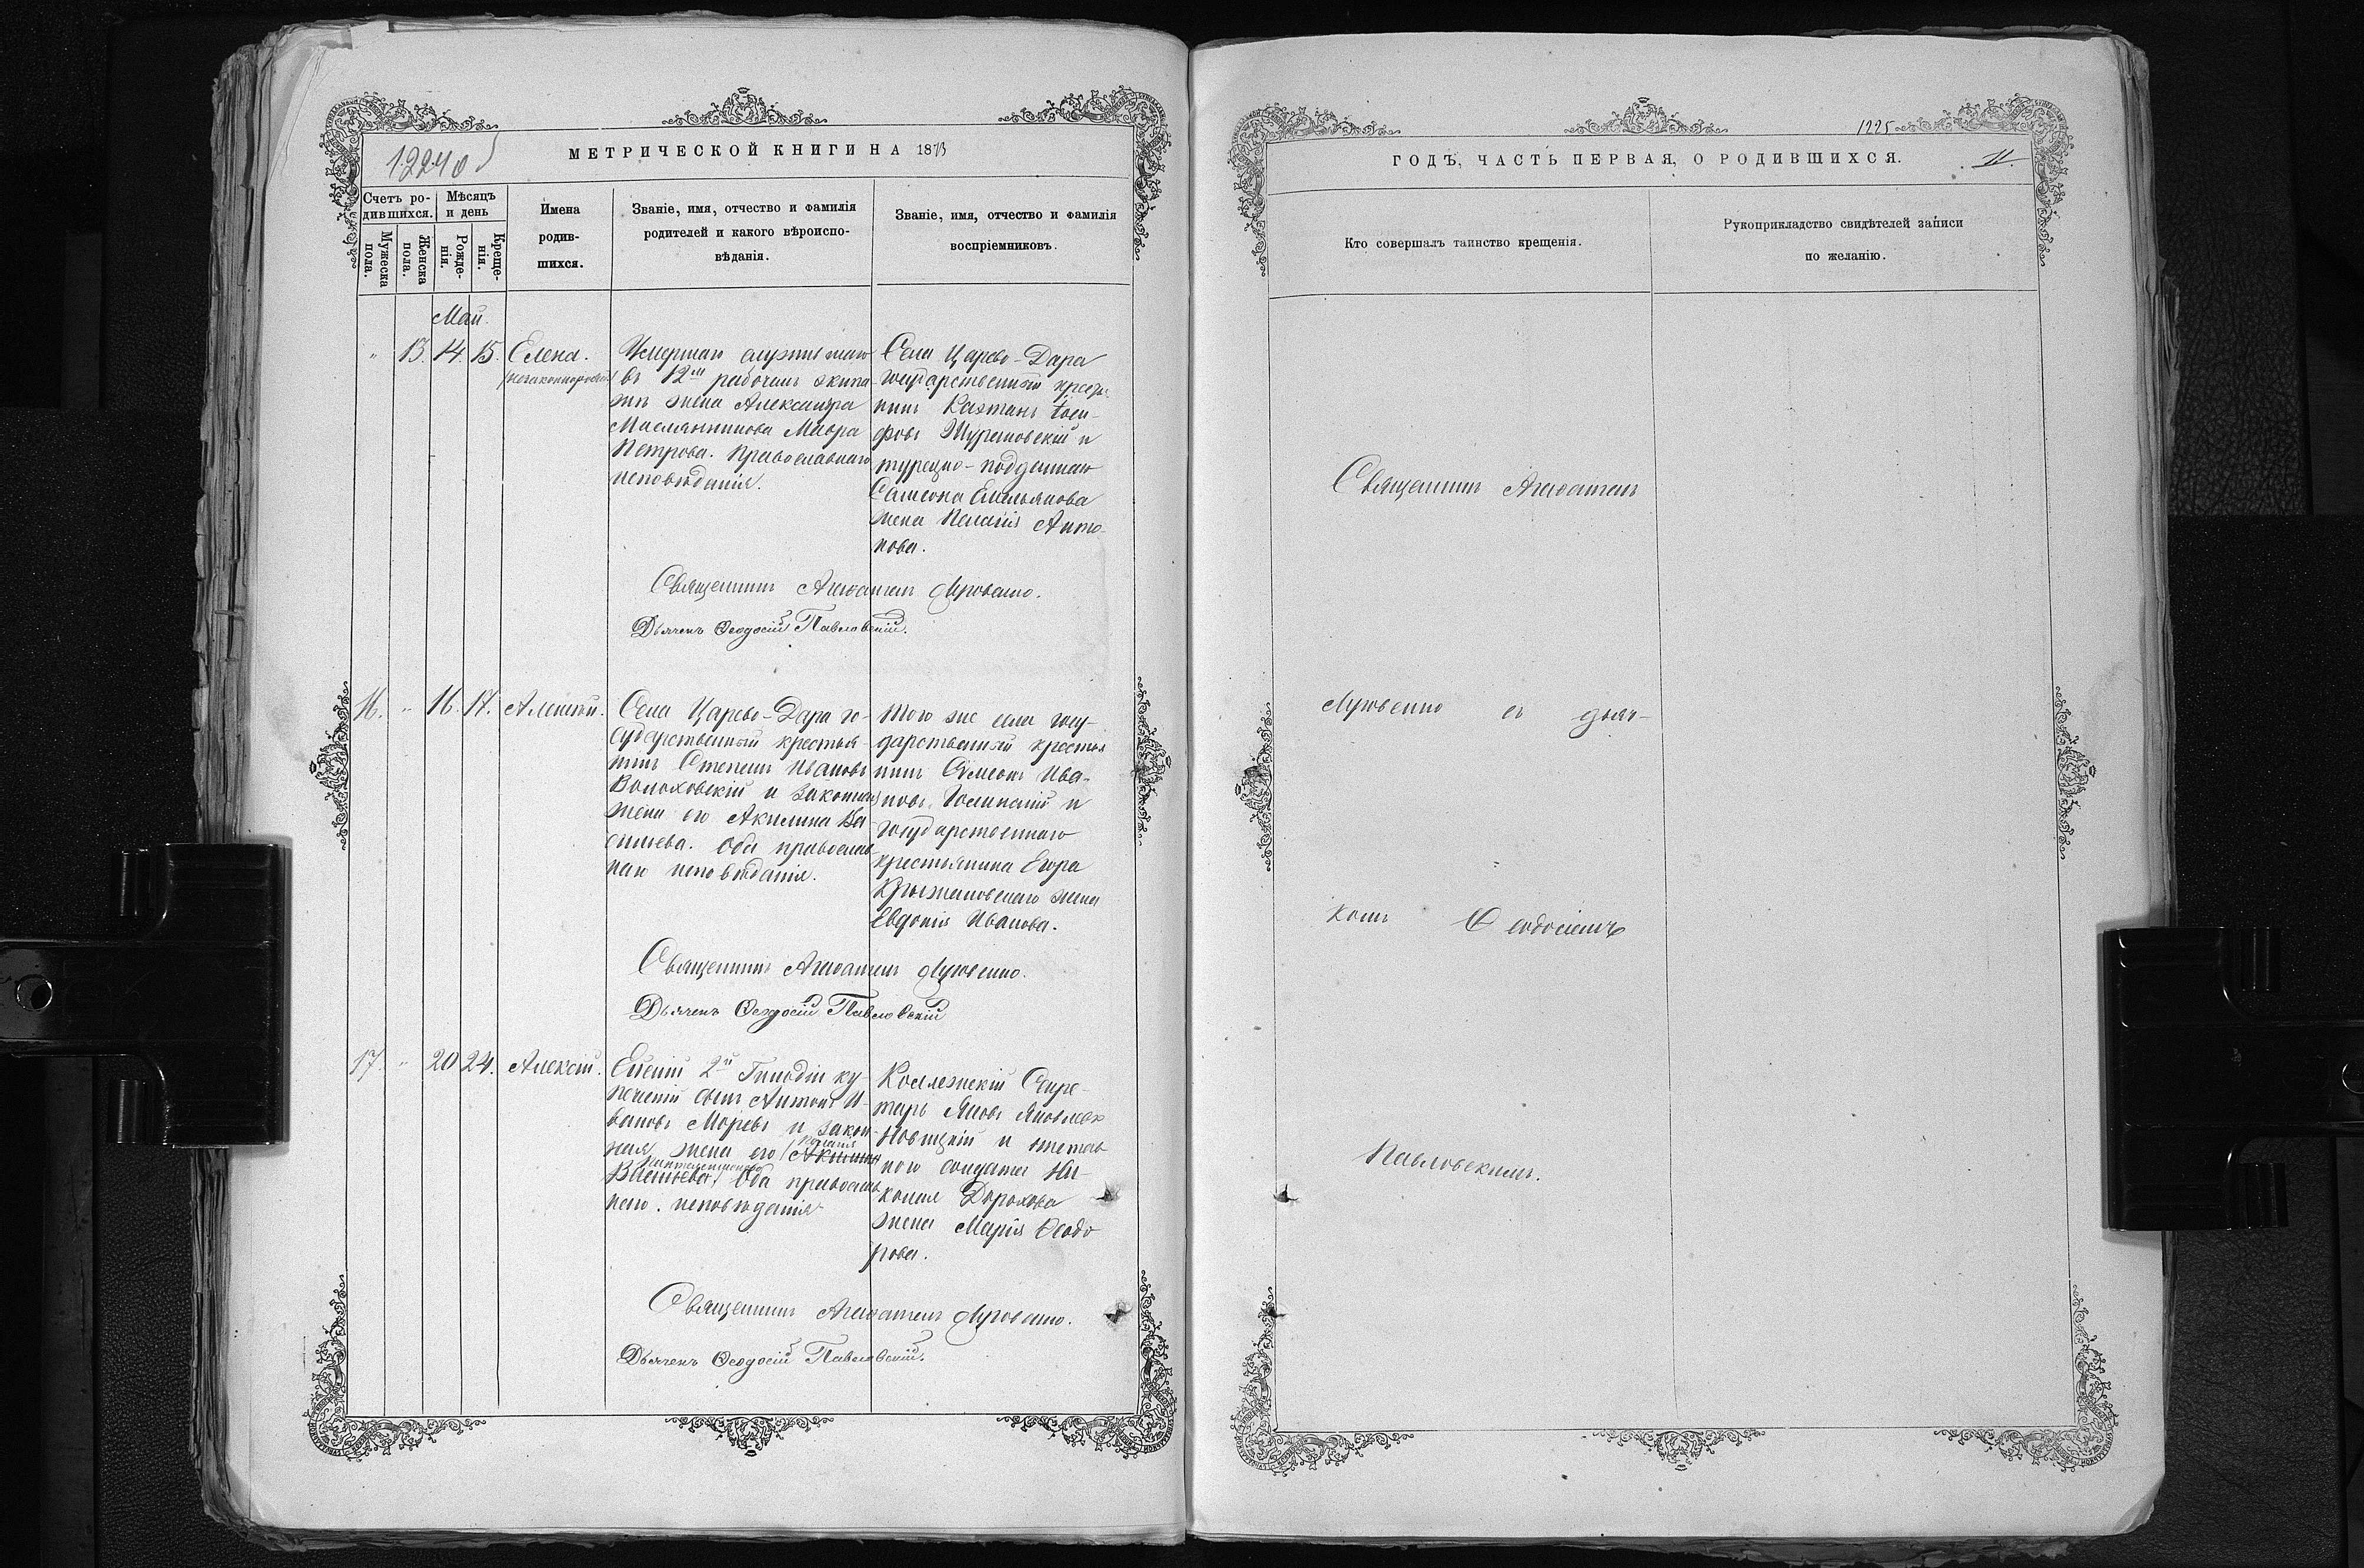 МЕТРИЧЕСКОЙ КНИГИ НА 1873
1224 об
Счетъ ро-
дившихся.
Мѣсяцъ
и день
Мужеска
пола.
Женска
пола.
Рожде-
нія.
Креще-
нія.
Имена
родив-
шихся.
Званіе, имя, отчество и фамилія
родителей и какого вѣроиспо-
вѣданія.
Званіе, имя, отчество и фамилія
воспріемниковъ.
Май.
" 13. 14. 15. Елена.
Умершаго служившаго
въ 12мъ рабочемъ экипа-
жѣ жена Александра
Маслянникова Мавра
Петрова. Православнаго
исповѣданія.
Села Царево-Дара
государственный кресть-
нинъ Каэтанъ Іоси-
фовъ Журановскій и
турецко-подданнаго
Самсона Емельянова
жена Пелагія Анто-
нова.
Священникъ Агаѳангелъ Луговенко.
Дьячекъ Ѳеодосій Павловскій.
16. " 16. 17. Алексій.
Села Царево-Дара го-
сударственный крестья-
нинъ Стефанъ Ивановъ
Волоховскій и законная
жена его Акилина Ва-
сильева. Оба православ-
наго исповѣданія.
Того же села госу-
дарственный крестья
нинъ Симеонъ Ива-
новъ и
государственнаго
крестьянина Егора
Крыжановскаго жена
Евдокія Иванова.
Священникъ Агаѳангелъ Луговенко.
Дьячекъ Ѳеодосій Павловскій
17. " 20 24. Алексій.
2й Гильдіи ку-
печескій сынъ Антонъ И-
вановъ Моревъ и закон-
ная жена его Акилина
Пелагія
Пантелеимонова
Васильева Оба православ-
наго исповѣданія
Коллежскій Секре-
тарь Яковъ Яковлевъ
Новицкій и отстав-
наго солдата Ни-
колая Дорохова
жена Марія Ѳеодо
рова.
Священникъ Агаѳангелъ Луговенко.
Дьячекъ Ѳеодосій Павловскій.
1225
ГОДЪ, ЧАСТЬ ПЕРВАЯ, О РОДИВШИХСЯ.
Кто совершалъ таинство крещенія.
Рукоприкладство свидѣтелей записи
по желанію.
Священникъ Агаѳангелъ
Луговенко съ дьяч-
комъ Ѳеодосіемъ
Павловскимъ.